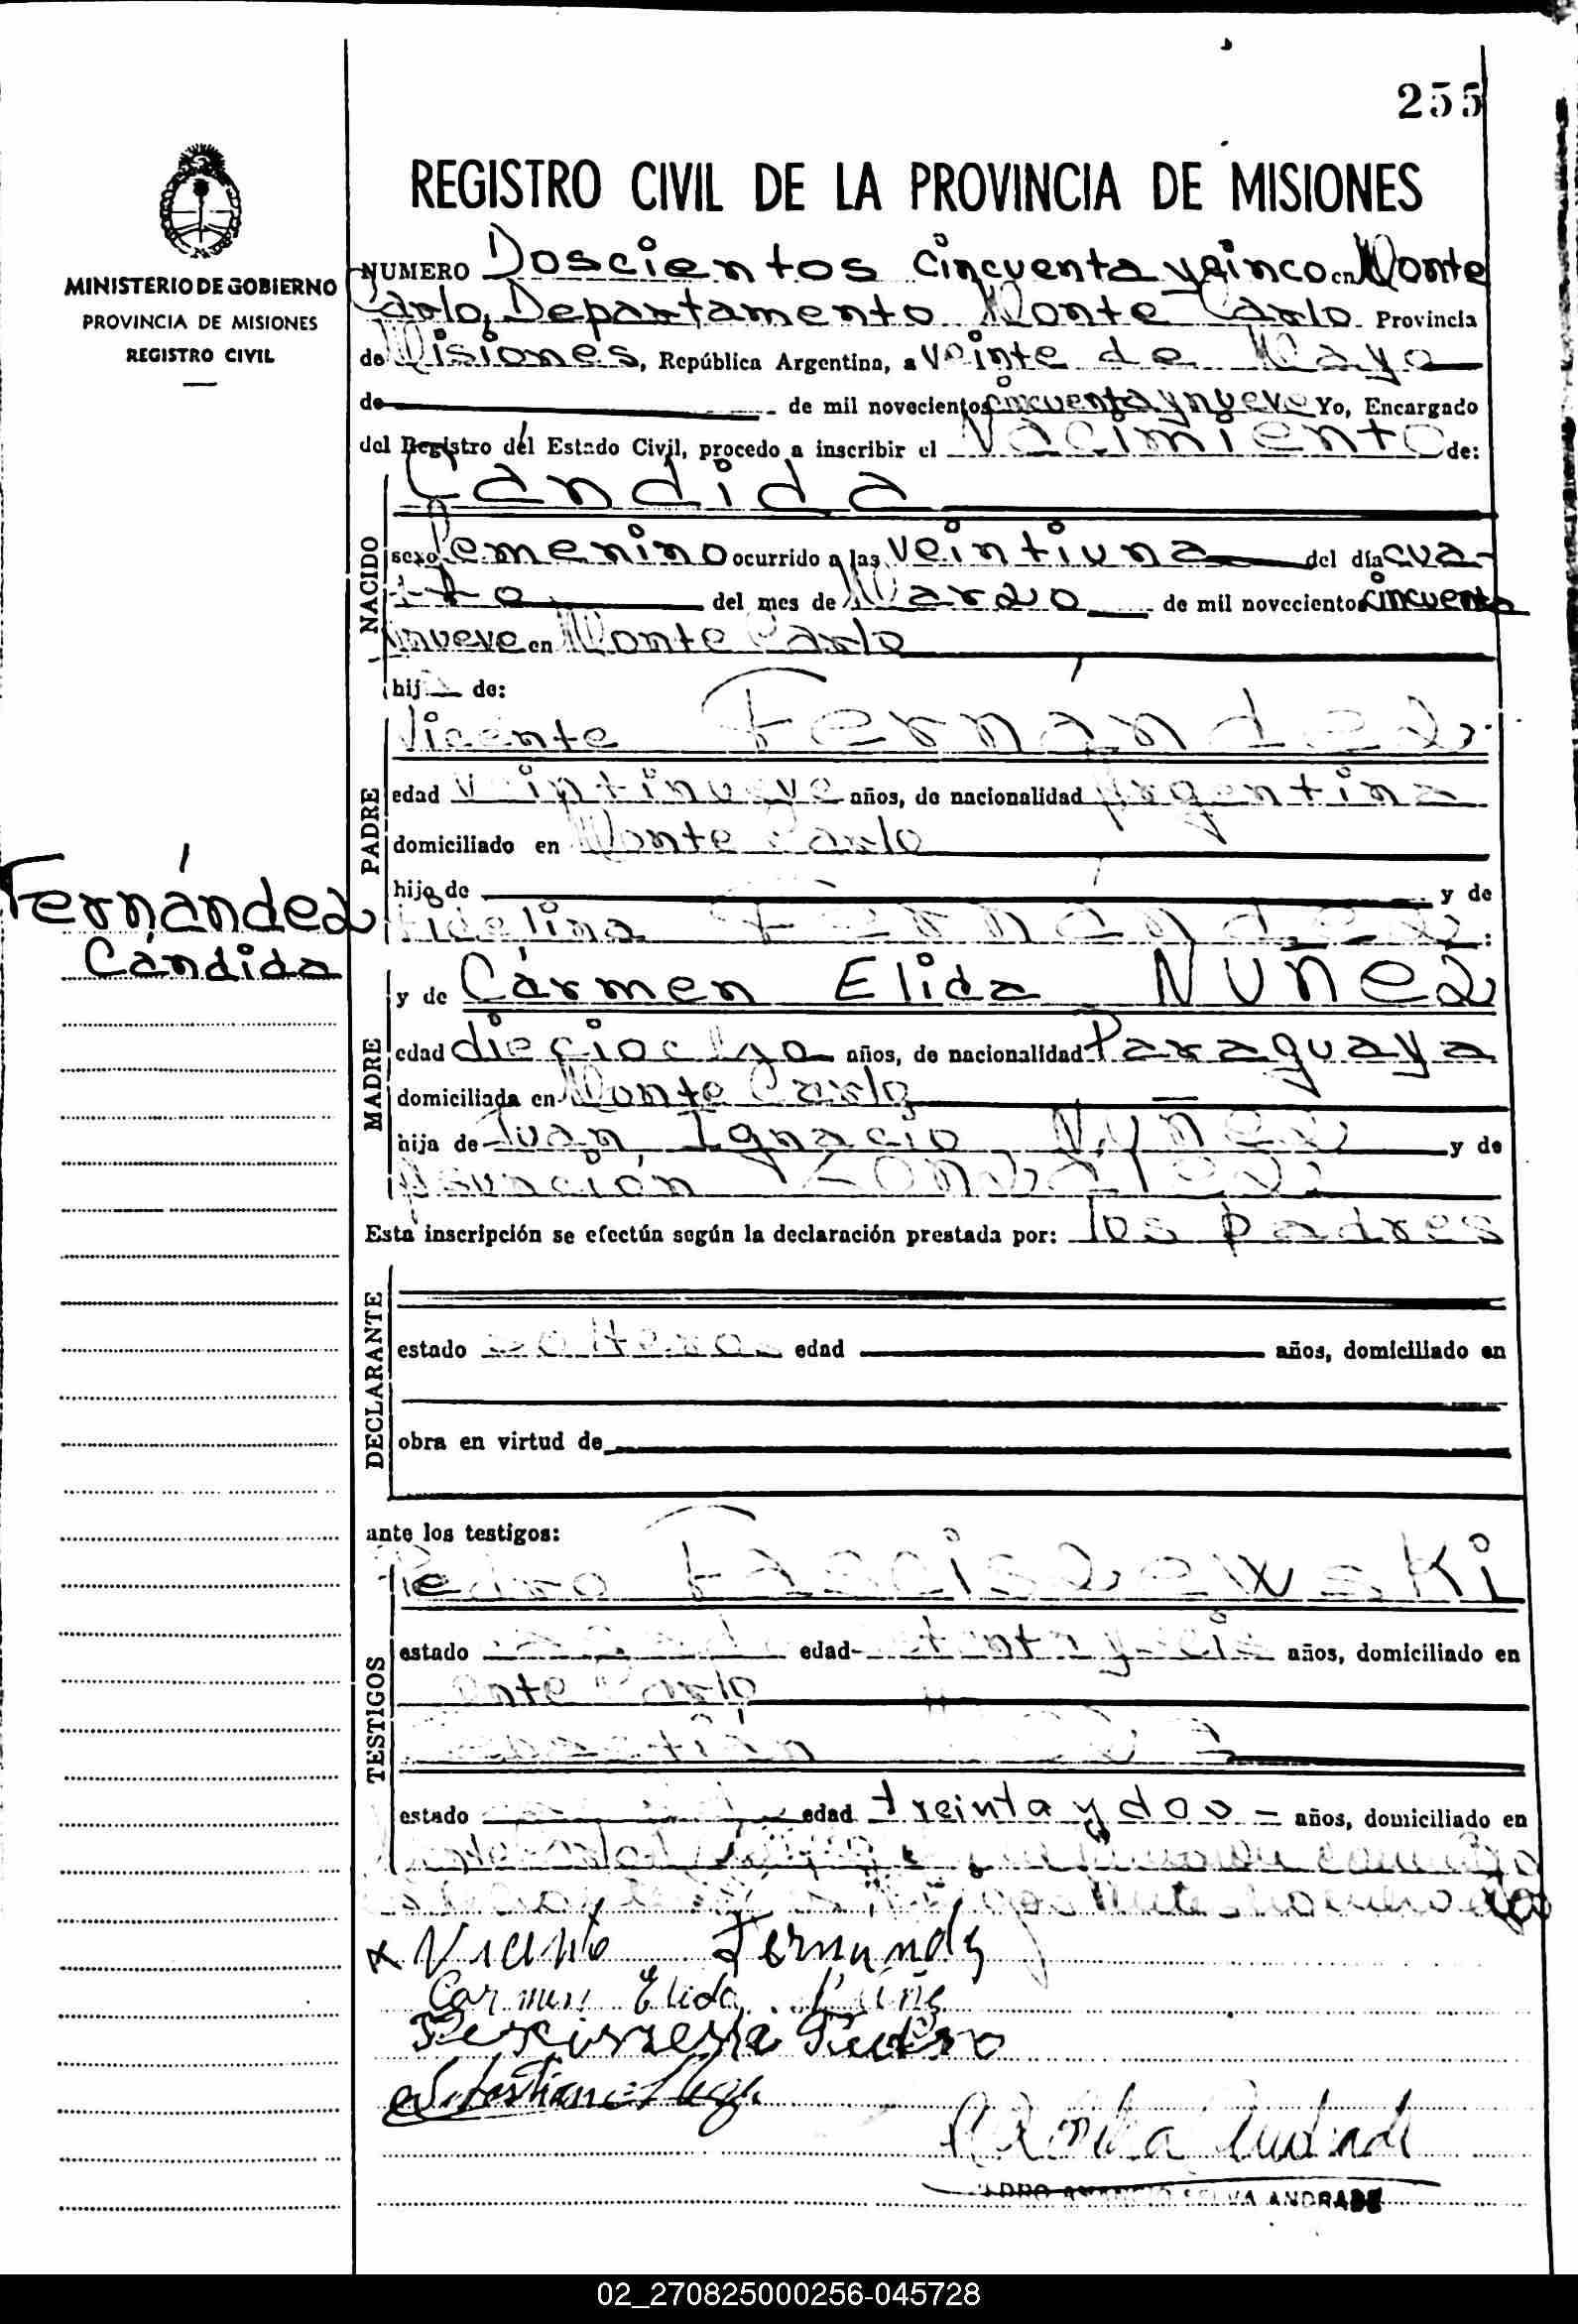 255
REGISTRO CIVIL DE LA PROVINCIA DE MISIONES
MINISTERIO DE GOBIERNO
PROVINCIA DE MISIONES
REGISTRO CIVIL
NUMERO Doscientos cincuenta y cinco en Monte
Carlo, Departamento Monte Carlo Provincia
de Misiones, República Argentina, a veinte de Mayo
de de mil novecientos cincuenta y nueve Yo, Encargado
del Registro del Estado Civil, procedo a inscribir el Nacimiento de:
Cándida
NACIDO
sexo femenino ocurrido a las veintiuna del día cua-
tro del mes de Marzo de mil novecientos cincuenta
nueve en Monte Carlo
hija de:
Vicente Fernández
PADRE
edad veintinueve años, de nacionalidad Argentina
domiciliado en Monte Carlo
hijo de y de
Fidelina Fernández
Fernández
Cándida
MADRE
y de Cármen Elida NUÑEZ
edad dieciocho años, de nacionalidad Paraguaya
domiciliada en Monte Carlo
hija de Juan Ignacio Nuñez y de
Asunción González
Esta inscripción se efectúa según la declaración prestada por: los padres
DECLARANTE
estado solteros edad años, domiciliado en
obra en virtud de
ante los testigos:
TESTIGOS
Pedro
estado edad años, domiciliado en
Monte Carlo
Sebastián
estado edad treinta y dos años, domiciliado en
Vicente Fernandez
Carmen Elida Núñez
Pedro
ANDRADE
02_270825000256-045728